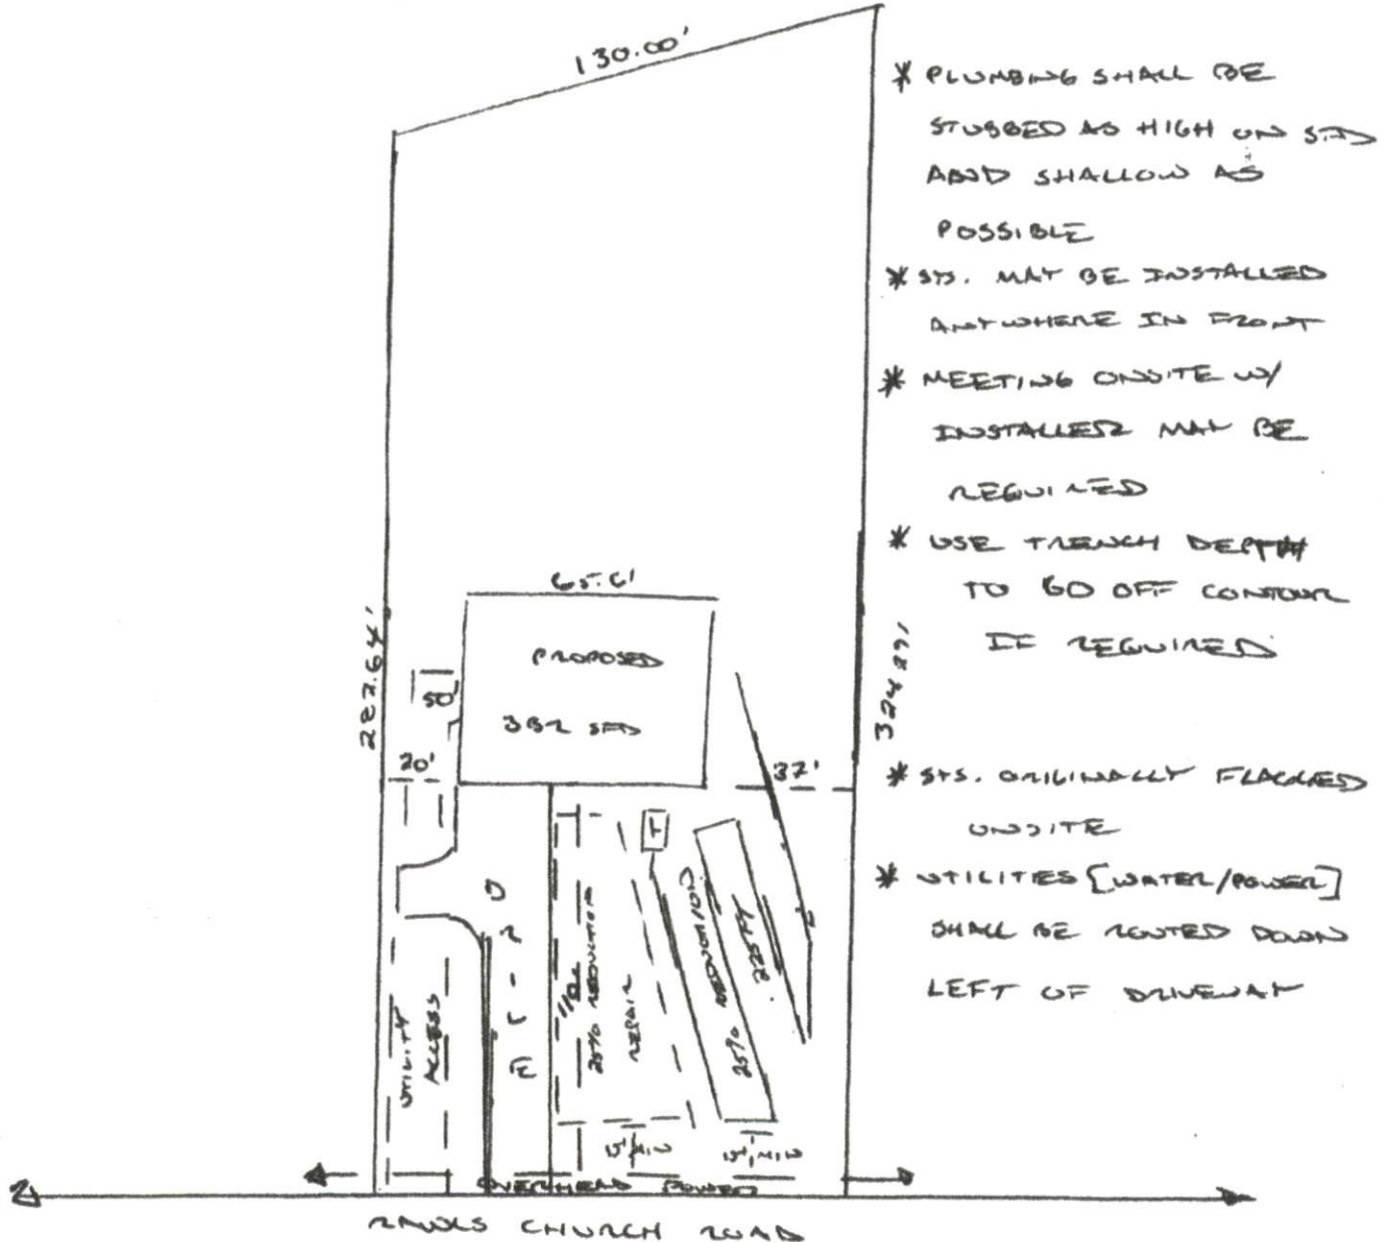 130.00'
* PLUMBING SHALL BE
STUBBED AS HIGH ON SFD
AND SHALLOW AS
POSSIBLE
* SYS. MAY BE INSTALLED
ANYWHERE IN FRONT
* MEETING ONSITE W/
INSTALLER MAY BE
REQUIRED
* USE TRENCH DEPTH
TO GO OFF CONTOUR
IF REQUIRED
* SYS. ORIGINALLY FLAGGED
ONSITE
* UTILITIES [WATER/POWER]
SHALL BE ROUTED DOWN
LEFT OF DRIVEWAY
65.6'
PROPOSED
3BR SFD
20'
37'
T
25% REDUCTION
REPAIR
25% REDUCTION
225 FT
UTILITY
ACCESS
MIN
MIN
OVERHEAD POWER
RAWLS CHURCH ROAD